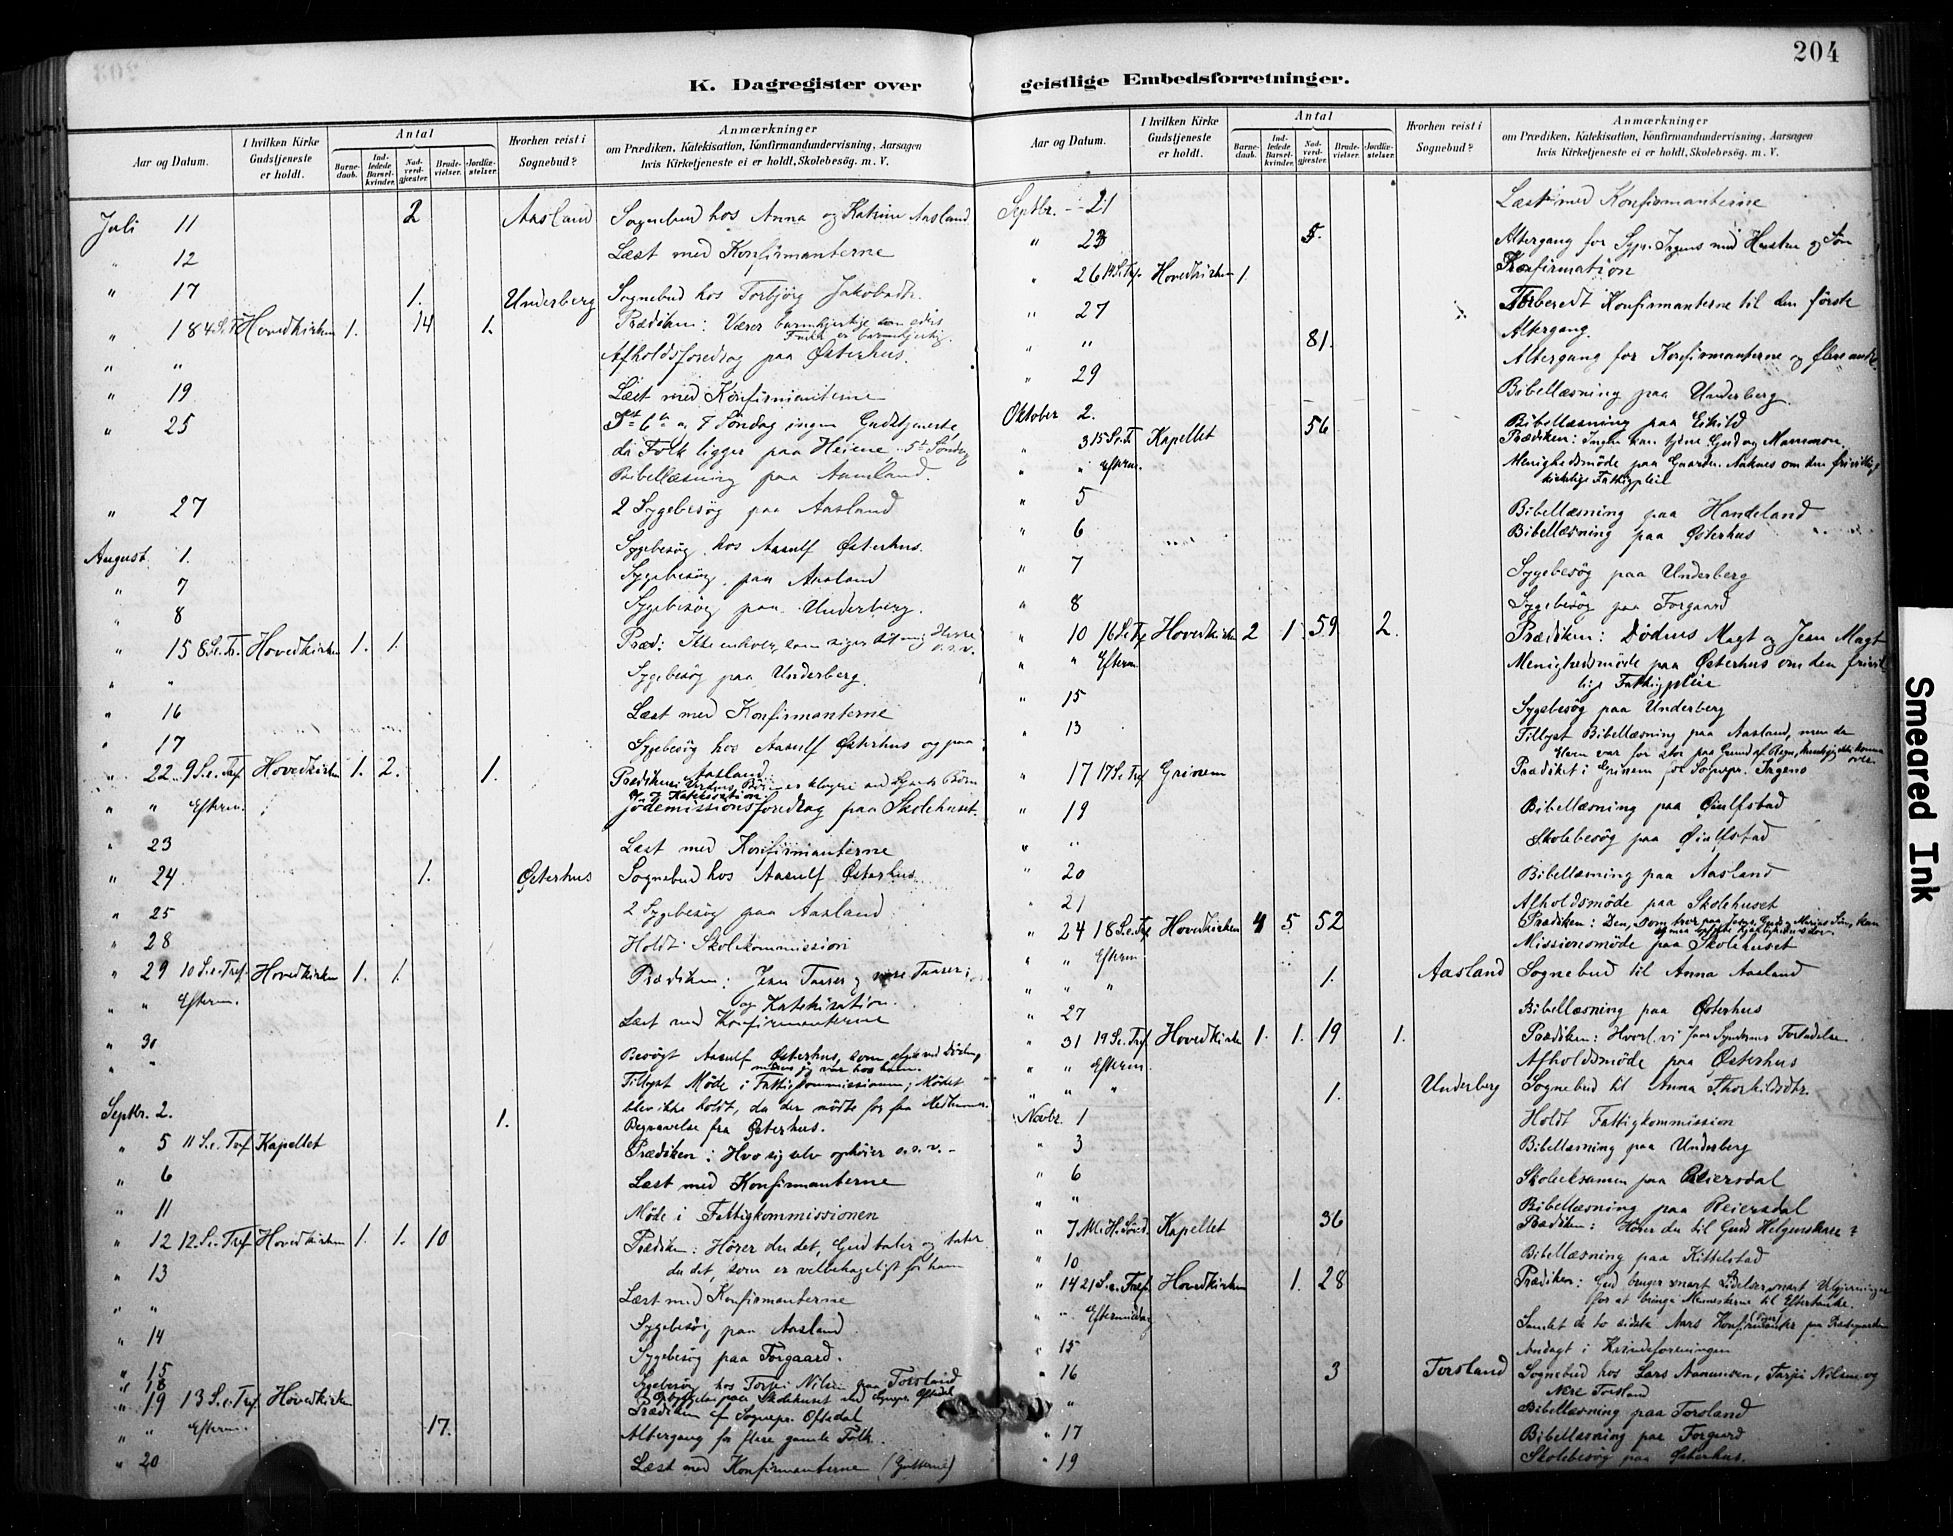 204
K. Dagregister over geistlige Embedsforretninger.
Aar og Datum.
I hvilken Kirke Gudstjeneste er holdt.
Antal
Barnedaab.
Indledede Barselkvinder.
Nadverdgjester.
Brudevielser.
Jordfæstelser.
Hvorhen reist i Sognebud?
Anmærkninger
om Prædiken, Katekisation, Konfirmandundervisning, Aarsagen
hvis Kirketjeneste ei er holdt, Skolebesøg. m. V.
Juli 11 2 Aasland Sognebud hos Anna og Katrine Aasland
" 12 Læst med Konfirmanterne
" 17 1. Underberg Sognebud hos Torbjörg Jakobsdtr.
" 18 4. S. Hovedkirken 1. 14 1. Prædiken: Værer barmhjertige som eders
Fader er barmhjertig.
" " Afholdsforedrag paa Østerhus.
" 19 Læst med Konfirmanterne
" 25 6te o, 7 Søndag ingen Gudstjeneste
da Folk ligger paa Heiene. 5te Søndag
Bibellæsning paa Aamland.
" 27 2 Sygebesøg paa Aasland
August 1. Sygebesøg hos Aasulf Østerhus.
" 7 Sygebesøg paa Aasland
" 8 Sygebesøg paa Underberg.
" 15 8 S.e.Tr. Hovedkirken 1. 1. Præd: Ikke enhver, som siger til mig Herre
o.s.v.
" " Sygebesøg paa Underberg.
" 16 Læst med Konfirmanterne
" 17 Sygebesøg hos Aasulf Østerhus og paa
Aasland
" 22 9 S.e. Tref. Hovedkirken 1. 2. 1. Prædiken:
og Katekisation.
" " Efterm. jödemissionsforedrag paa Skolehuset.
" 23 Læst med Konfirmanterne
" 24 1. Østerhus Sognebud hos Aasulf Østerhus
" 25 2 Sygebesøg paa Aasland
" 28 Holdt Skolekommission
" 29 10 S.e. Tref. Hovedkirken 1. 1. Prædiken: Jesu Taarer og vore Taarer;
" " Efterm. og Katekisation.
Læst med Konfirmanterne
" 30 Besøgt Aasulf Østerhus, som afgik ved Döden,
mens jeg var hos ham.
" " Tillyst Møde i Fattigkommissionen; Mödet
blev ikke holdt, da der mödte for faa Medlemmer.
Septbr. 2. 1. Begravelse fra Østerhus.
" 5 11 S.e. Tref Kapellet Prædiken: Hvo sig selv ophøier o.s.v.
" 6 Læst med Konfirmanterne
" 11 Møde i Fattigkommissionen
" 12 12 S.e. Tref Hovedkirken 1. 1. 10 Prædiken: Hører du det, Gud taler og taler
du det, som er velbehageligt for ham
" 13 Læst med Konfirmanterne
" " Sygebesøg paa Aasland
" 14 Sygebesøg paa Torgaard.
" 15 Sygebesøg hos Torjei Nilsen paa Torsland
" 18 Opbyggelse paa Skolehuset ved Sognepr. Oftedal
" 19 13 S.e. Tref Hovedkirken Prædiken af Sognepr. Oftedal
" " Efterm. 17. Altergang for flere gamle Folk
" 20 Læst med Konfirmanterne (Gutterne)
Septbr. 21 Læst med Konfirmanterne
" 23 5. Altergang for Sypr. Irgens med Hustru og Søn
" 26 14 S.e.Tref. Hovedkirken 1 Konfirmation
" 27 Forberedt Konfirmanterne til den første
Altergang.
" " 81. Altergang for Konfirmanterne og flere andre
" 29 Bibellæsning paa Underberg.
Oktober 2. Bibellæsning paa Eikild
" 3 15 S.e.T Kapellet 56 Prædiken: Ingen kan tjene Gud og Mammon.
" " Efterm. Menighedsmöde paa Gaarden Aaknes om den frivillige
kirkelige Fattigpleie
" 5 Bibellæsning paa Handeland
" 6 Bibellæsning paa Østerhus
" 7 Sygebesøg paa Underberg
" 8 Sygebesøg paa Torgaard
" 10 16 S.e Tref Hovedkirken 2 1 59 2. Prædiken: Dødens Magt og Jesu Magt
" " Efterm Menighedsmöde paa Østerhus om den frivil
lige Fattigpleie
" 15 Sygebesøg paa Underberg
" 13 Tillyst Bibellæsning paa Aasland, men da
Elven var for stor paa Grund af Regn, kunde jeg ikke komme
over
" 17 17 S.e Tref Grinem Prædiket i Grinem for Sognepr. Irgens
" 19 Bibellæsning paa Øiulfstad
" " Skolebesøg paa Øiulfstad
" 20 Bibellæsning paa Aasland
" 21 Afholdsmøde paa Skolehuset
" 24 18 S.e. Tref Hovedkirken 4 5 52 Prædiken:
" " Efterm Missionsmøde paa Skolehuset
" " " 1. Aasland Sognebud til Anna Aasland
" 27 Bibellæsning paa Østerhus
" 31 19 S.e. Tref Hovedkirken 1. 1. 19 1. Prædiken: Hvorl. vi faar Syndernes Forladelse
" " Efterm. Afholdsmøde paa Østerhus
" " " 1. Underberg Sognebud til Anna Thorkildsdtr.
Novbr. 1 Holdt Fattigkommission
" 3 Bibellæsning paa Underberg
" 6 Skoleeksamen paa Reiersdal
" " Bibellæsning paa Reiersdal
" 7 Alle H. Sönd. Kapellet 36 Prædiken: Hører du til Guds Helgenskare?
" 10 Bibellæsning paa Kittelstad
" 14 21 S.e. Tref. Hovedkirken 1. 28 Prædiken: Gud bruger snart Lidelser snart Velgjerninger
for at bringe Menneskerne til Eftertanke.
" " Eftermiddag Samlet de to sidste Aars Konfirmanter paa Præstegaarden
" 15 Andagt i Kvindeforeningen
" 16 3 Torsland Sognebud hos Lars Aanensen, Tarjei Nilsen og
Nere Torsland
" Bibellæsning paa Torsland
" 17 Bibellæsning paa Torgaard
" 19 Skolebesøg paa Østerhus.
Smeared Ink